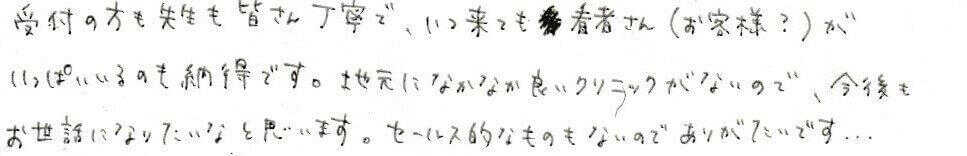 受付の方も先生も皆さん丁寧で、いつ来ても患者さん(お客様?)が
いっぱいいるのも納得です。地元になかなか良いクリニックがないので、今後も
お世話になりたいなと思います。セールス的なものもないのでありがたいです...